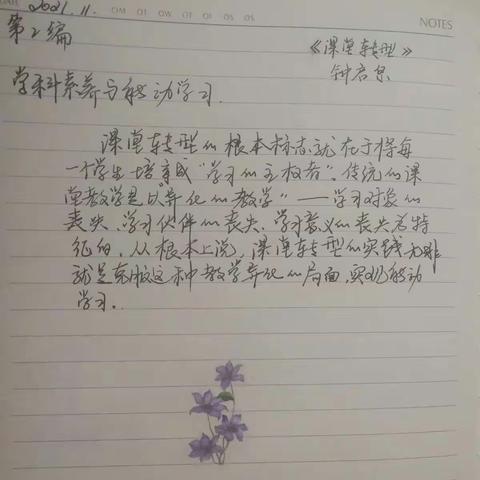 DATE
2021.11.
NOTES
第2编
《课堂转型》
钟启泉
学科素养与能动学习.
课堂转型的根本标志就在于将每
一个学生培育成“学习的主权者”. 传统的课
堂教学是以“异化的教学”——学习对象的
丧失、学习伙伴的丧失、学习意义的丧失为特
征的, 从根本上说, 课堂转型的实践无非
就是克服这种教学异化的局面, 实现能动
学习.